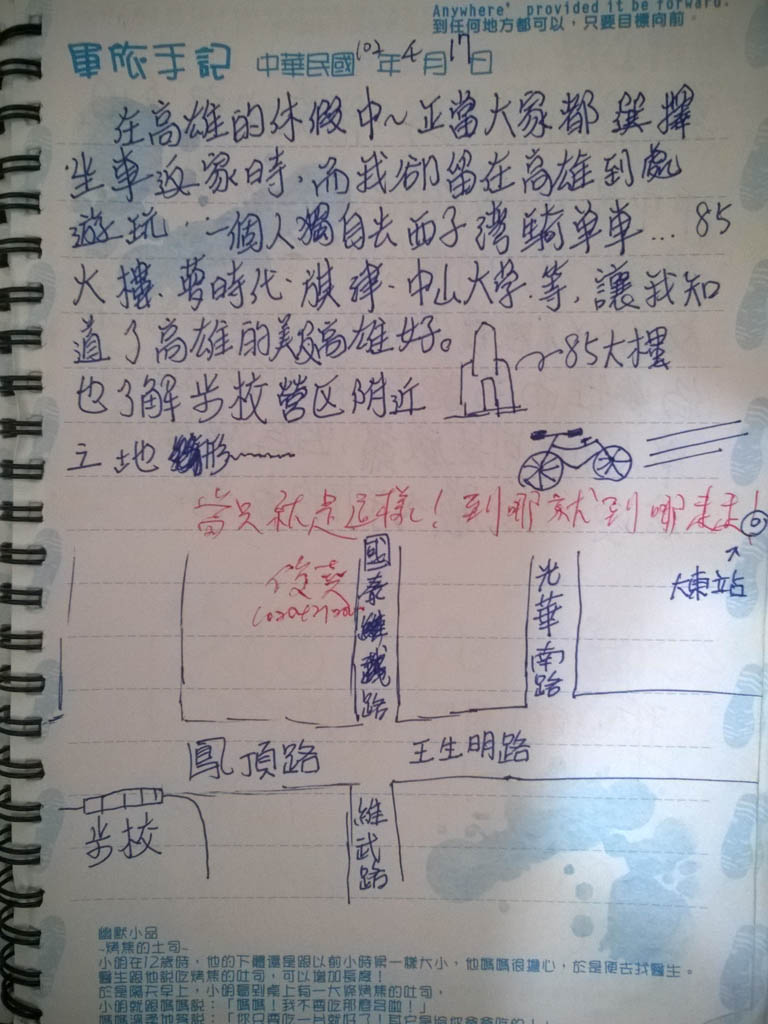 Anywhere' provided it be forward.
到任何地方都可以，只要目標向前。
軍旅手記 中華民國102年4月17日
在高雄的休假中~正當大家都選擇
坐車返家時，而我卻留在高雄到處
遊玩，一個人獨自去西子灣騎单車…85
大樓、夢時代、旗津、中山大学、等，讓我知
道了高雄的美及高雄好。
85大樓
也了解步校营区附近
之地形
當兵就是這樣！到哪就到哪走走！
俊
國泰路
光華南路
大東站
鳳頂路
王生明路
步校
維武路
幽默小品
~烤焦的土司~
小明在12歲時，他的下體還是跟以前小時候一樣大小，他媽媽很擔心，於是便去找醫生。
醫生跟他說吃烤焦的吐司，可以增加長度！
於是隔天早上，小明看到桌上有一大條烤焦的吐司，
小明就跟媽媽說：「媽媽！我不要吃那麼多啦！」
媽媽溫柔地答說：「你只要吃一片就好了！其它是給你爸爸吃的！」